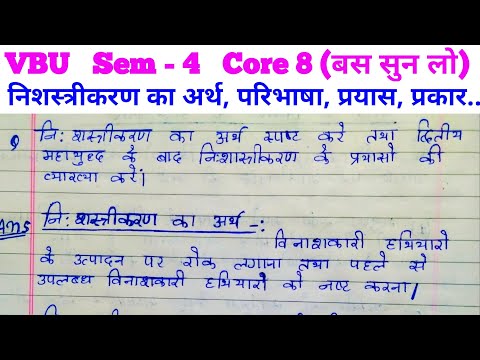 VBU Sem - 4 Core 8 (बस सुन लो)
निशस्त्रीकरण का अर्थ, परिभाषा, प्रयास, प्रकार..
Q नि: शस्त्रीकरण का अर्थ स्पष्ट करे तथा द्वितीय
महायुद्ध के बाद नि:शस्त्रीकरण के प्रयासो की
व्याख्या करें।
Ans नि: शस्त्रीकरण का अर्थ -:
विनाशकारी हथियारो
के उत्पादन पर रोक लगाना तथा पहले से
उपलब्ध विनाशकारी हथियारों को नष्ट करना।